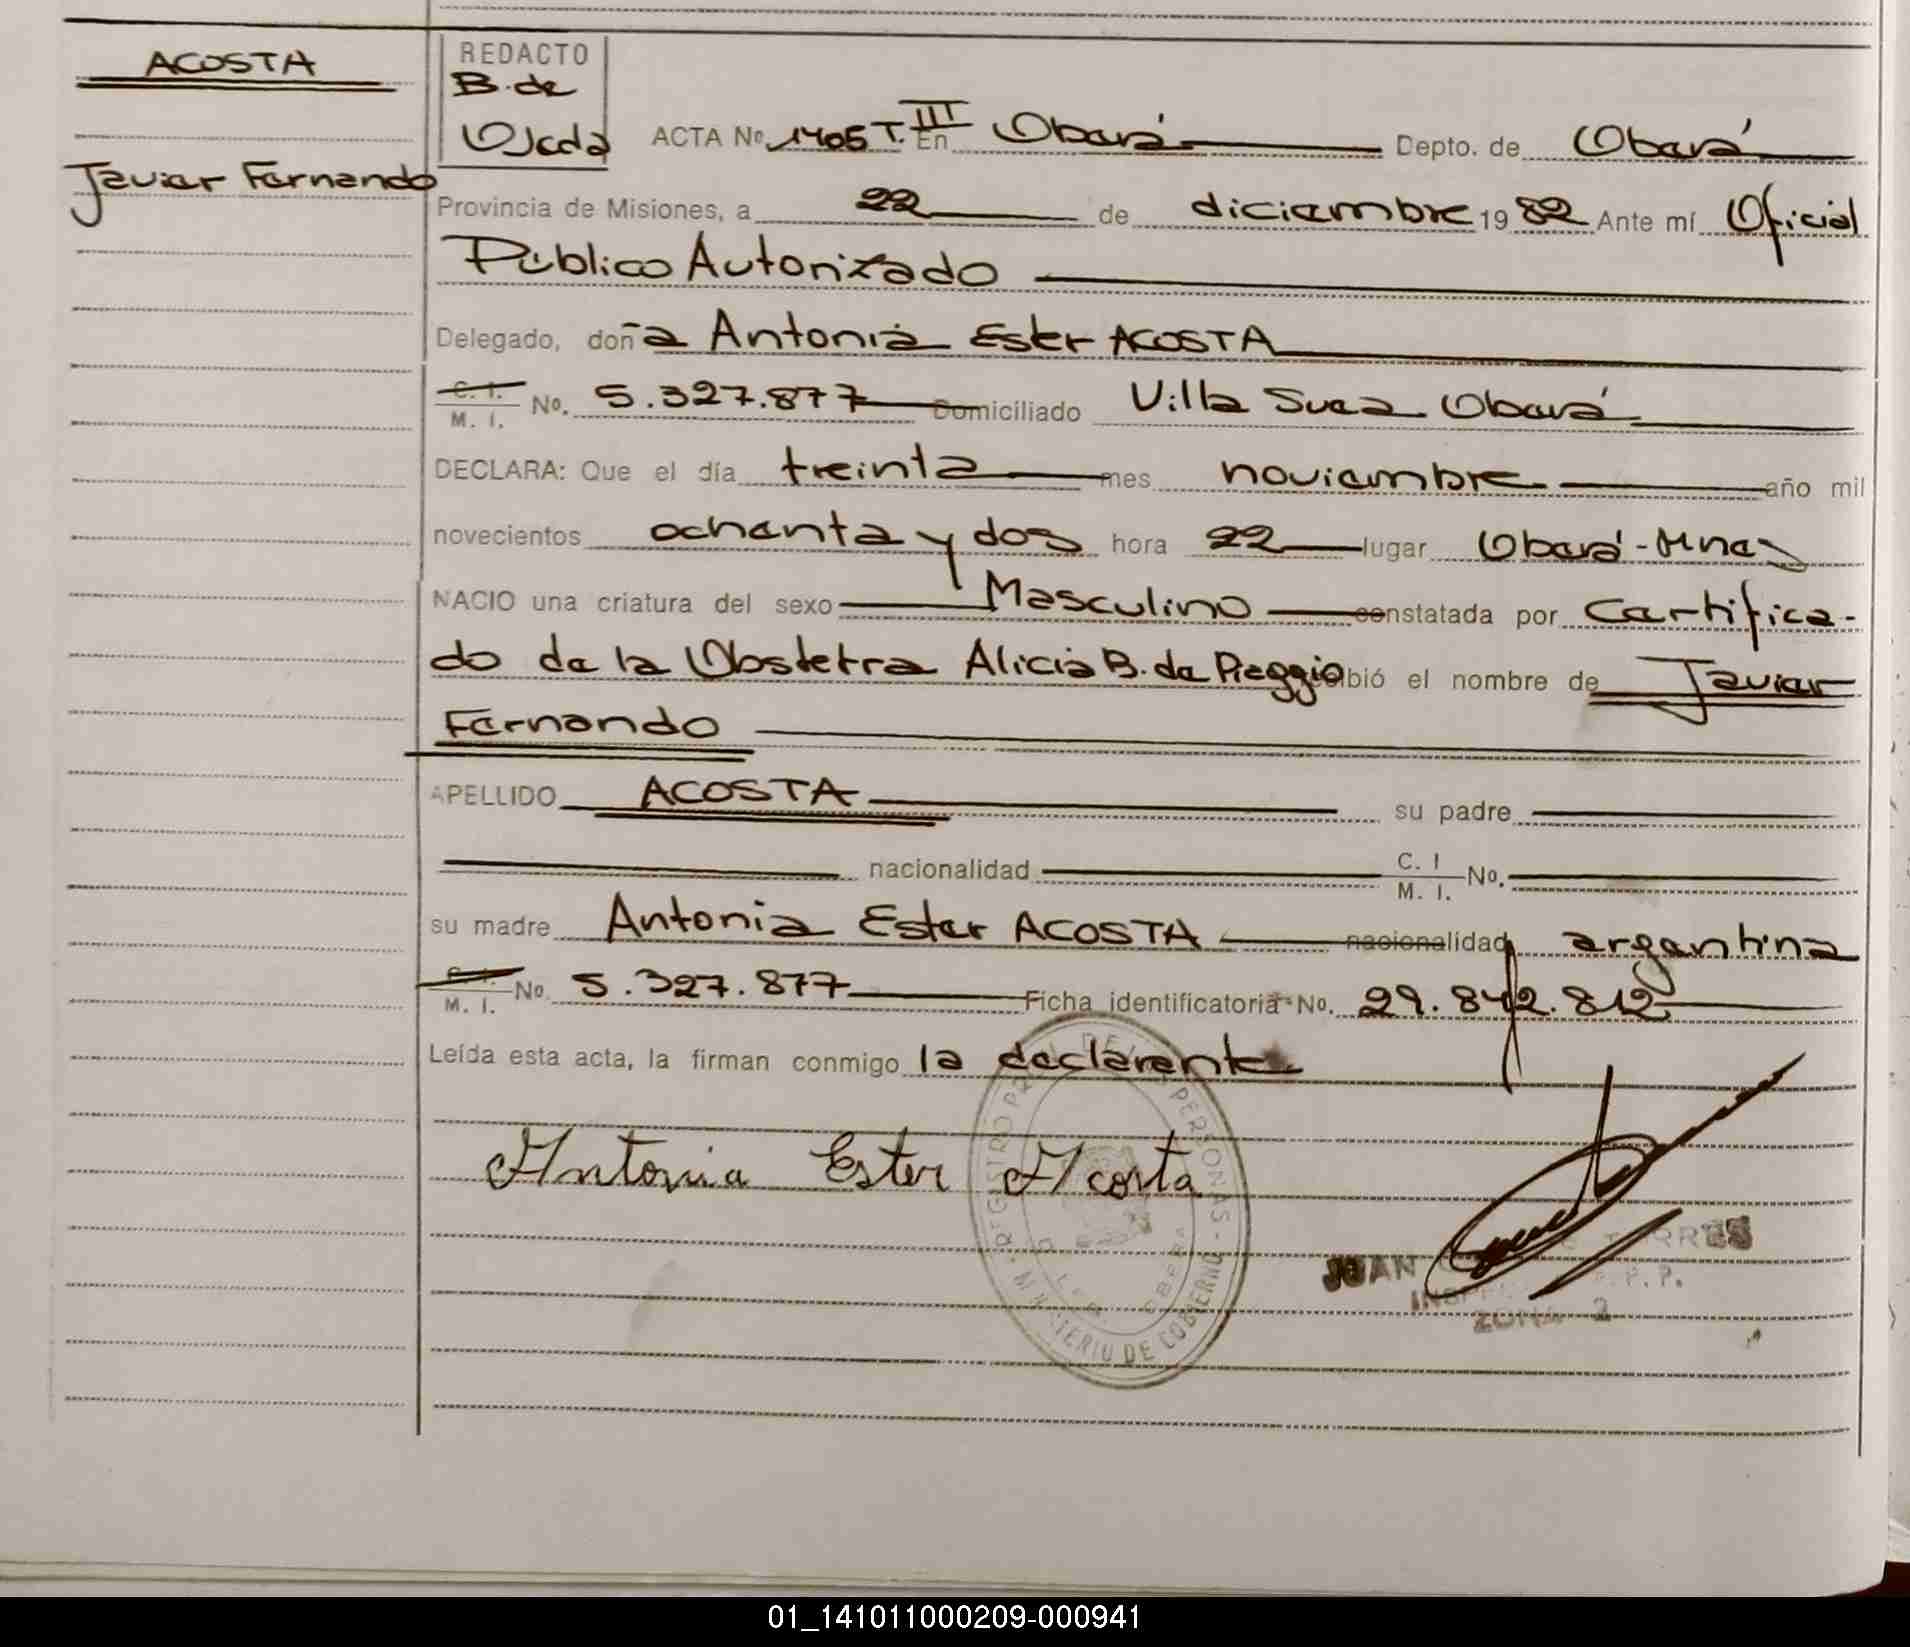 ACOSTA
Javier Fernando
REDACTO
B. de
Ojeda
ACTA No. 1405 T. III En Oberá Depto. de Oberá
Provincia de Misiones, a 22 de diciembre 19 82 Ante mí Oficial
Público Autorizado
Delegado, doña Antonia Ester ACOSTA
C. I. M. I. No. 5.327.877 Domiciliado Villa Svea Oberá
DECLARA: Que el día treinta mes noviembre año mil
novecientos ochenta y dos hora 22 lugar Oberá-Mnes
NACIO una criatura del sexo Masculino constatada por Certifica-
do de la Obstetra Alicia B. de Pieggio ibió el nombre de Javier
Fernando
APELLIDO ACOSTA su padre
nacionalidad C. I M. I. No.
su madre Antonia Ester ACOSTA nacionalidad argentina
C. I. M. I. No. 5.327.877 Ficha identificatoria No. 29.842.812
Leída esta acta, la firman conmigo la declarante
Antonia Ester Acosta
REGISTRO DE PERSONAS - MINISTERIO DE GOBIERNO
OBERA
JUAN TORRES
ZONA 2
01_141011000209-000941